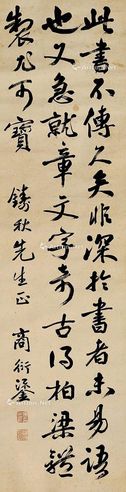 此書不傳久矣非深於書者未易語
也又急就章文字奇古似柏梁體
製尤可寶
鑄秋先生正 商衍鎏